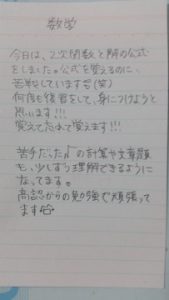 数学
今日は、2次関数と解の公式
をしました。公式を覚えるのに、
苦戦しています(笑)
何度も復習をして、身につけようと
思います!!!
覚えて忘れて覚えます!!!
苦手だった√の計算や文章題
も、少しずつ理解できるように
なってます。
高認からの勉強で頑張って
ます